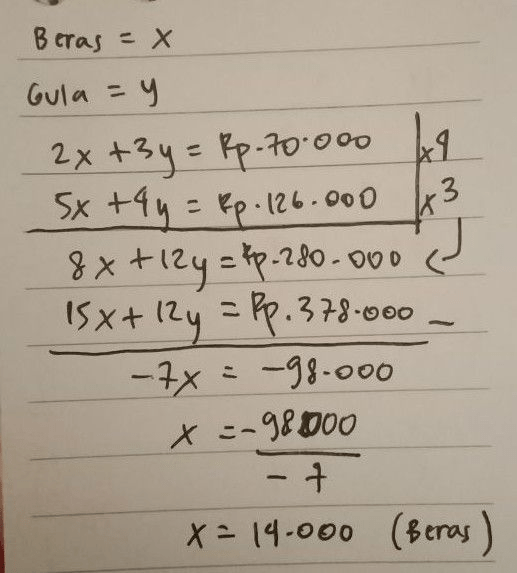 Beras = x
Gula = y
2x + 3y = Rp.70.000 | x4
5x + 4y = Rp.126.000 | x3
8x + 12y = Rp.280.000
15x + 12y = Rp.378.000 -
-7x = -98.000
x = -98000
-7
x = 14.000 (Beras)